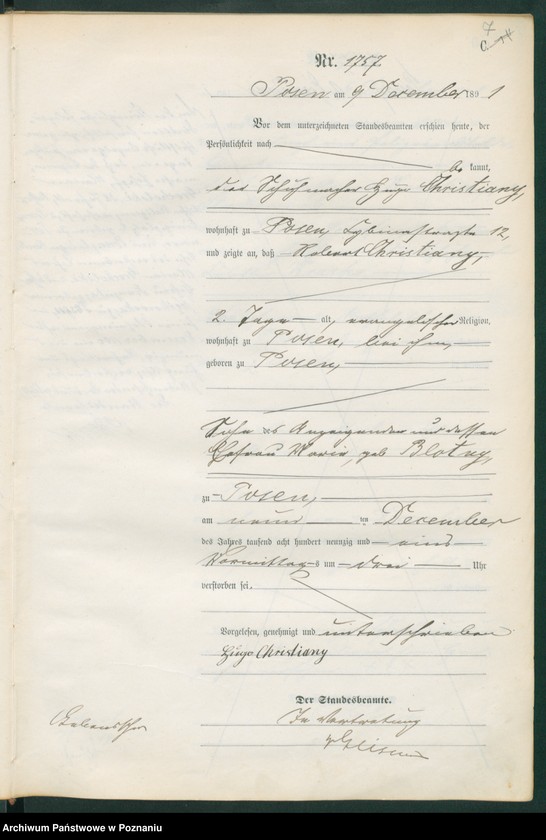 7
C.
Nr. 1757.
Posen am 9 December 1891
Vor dem unterzeichneten Standesbeamten erschien heute, der
Persönlichkeit nach
be kannt,
der Schuhmacher Hugo Christiany,
wohnhaft zu Posen, Cybinastraße 12,
und zeigte an, daß Robert Christiany,
2. Tage alt, evangelischer Religion,
wohnhaft zu Posen, bei ihm,
geboren zu Posen,
Sohn des Anzeigenden und dessen
Ehefrau Marie, geb Blotny,
zu Posen,
am neun ten December
des Jahres tausend acht hundert neunzig und eins
Vormittags um drei Uhr
verstorben sei.
Vorgelesen, genehmigt und unterschrieben
Hugo Christiany
Der Standesbeamte.
In Vertretung
Archiwum Państwowe w Poznaniu